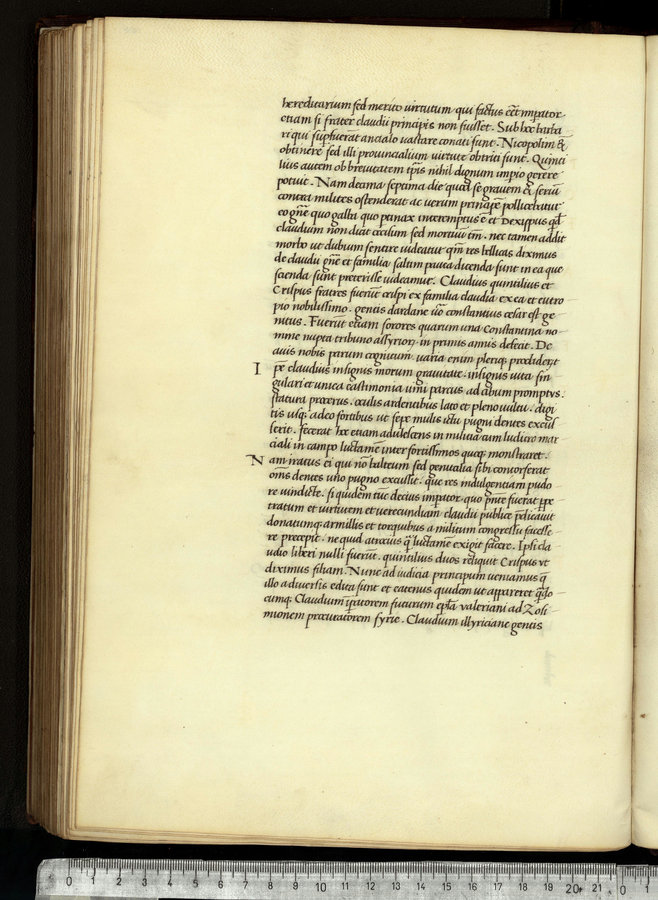 hereditarium sed merito uirtutum qui factus eēt impator.
etiam si frater claudii principis non fuisset. Sub hoc barba
ri qui supfuerāt ancialo uastare conati sunt. Nicopolim &
obtinere sed illi prouincialium uirtute obtriti sunt. Quinti
lius autem ob breuitatem tp̄is nihil dignum impio gerere
potuit. Nam decima septima die quod se grauem & seriū
contra milites ostenderat ac uerum principē pollicebatur
eo gn̄e quo galba quo ptinax interemptus ē et Dexippus qd̄
claudium non dicit occisum sed mortuū tm̄. nec tamen addit
morbo ut dubium sentire uideatur qm̄ res bellicas diximus
de claudii gn̄e et familia saltim pauca dicenda sunt ne ea que
scienda sunt preterisse uideamur. Claudius quintilius et
Crispus fratres fuerūt crispi ex familia claudia ex ea et eutro
pio nobilissimo. gentis dardane uiro constantius cesar est ge
nitus. Fuerūt etiam sorores quarum una Constantina no
mine nupta tribuno assyrior. in primis annis defecit. De
auis nobis parum cognitum. uaria enim pleriq; prodiderūt
I pe claudius insignis morum grauitate. insignis uita sin
gulari et unica castimonia uini parcus. ad cibum promptus.
statura procerus. oculis ardentibus lato et pleno uultu. digi
tis usq; adeo fortibus ut sepe mulis ictu pugni dentes excus
serit. fecerat hec etiam adulescens in militia cum ludicro mar
ciali in campo luctamē inter fortissimos quosq; monstraret.
N am iratus ei qui nō balteum sed genitalia sibi contorserat
oms dentes uno pugno excussit. que res indulgentiam pudo
re uindicte. si quidem tūc decius impator. quo pn̄te fuerat ppe
tratum et uirtutem et uerecundiam claudii publice predicauit
donatumq; armillis et torquibus a militum congressu facesse
re precepit. ne quid atrocius q̄ luctamē exigit facere. Ipsi cla
udio liberi nulli fuerūt. quintilius duos reliquit Crispus ut
diximus filiam. Nunc ad iudicia principum ueniamus q̄
illo a diuersis edita sunt et eatenus quidem ut appareret qn̄do
cumq; Claudium ip̄atorem futurum epl̄a valeriani ad Zosi
mionem procuratorem syrie. Claudium illyriciane gentis